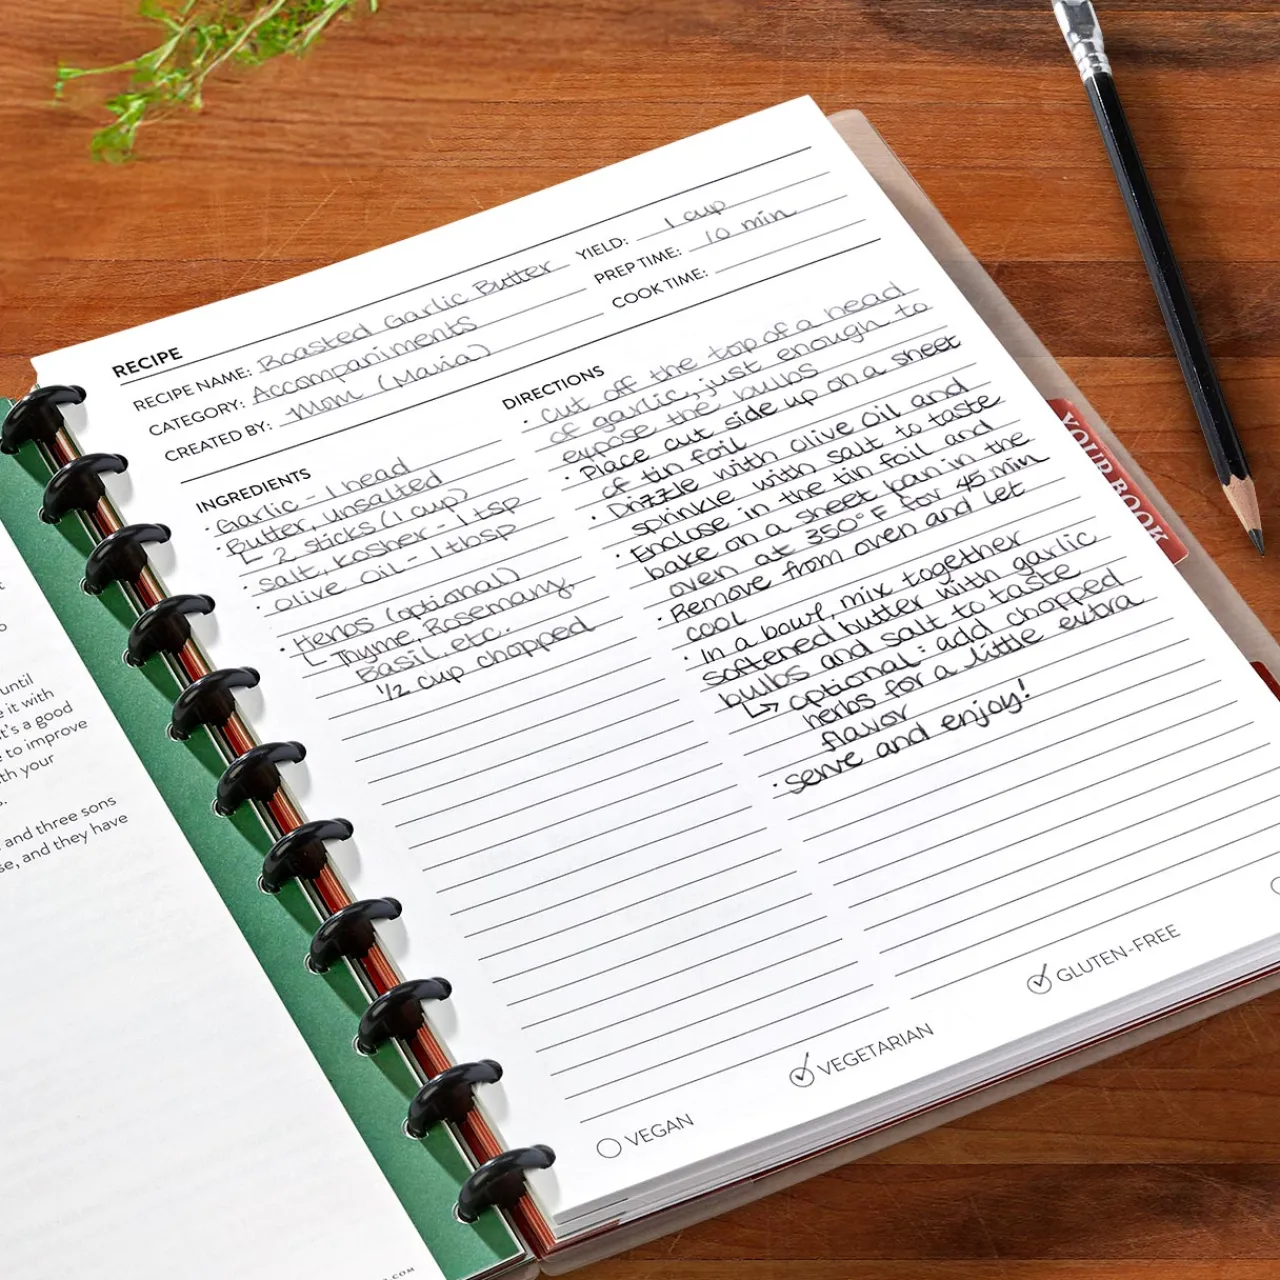 RECIPE
RECIPE NAME: Roasted Garlic Butter
CATEGORY: Accompaniments
CREATED BY: Mom (Maria)
YIELD: 1 cup
PREP TIME: 10 min
COOK TIME:
INGREDIENTS
· Garlic - 1 head
· Butter, unsalted
2 sticks (1 cup)
· salt, kosher - 1 tsp
· olive oil - 1 tbsp
· Herbs (optional)
Thyme, Rosemary,
Basil, etc.
1/2 cup chopped
DIRECTIONS
· Cut off the top of a head
of garlic, just enough to
expose the bulbs
· Place cut side up on a sheet
of tin foil
· Drizzle with olive oil and
sprinkle with salt to taste
· Enclose in the tin foil and
bake on a sheet pan in the
oven at 350°F for 45 min
· Remove from oven and let
cool
· In a bowl, mix together
softened butter with garlic
bulbs and salt to taste
↳ optional: add chopped
herbs for a little extra
flavor
· serve and enjoy!
VEGAN
VEGETARIAN
GLUTEN-FREE
YOUR BOOK
until
e it with
t's a good
e to improve
th your
s.
and three sons
se, and they have
.COM